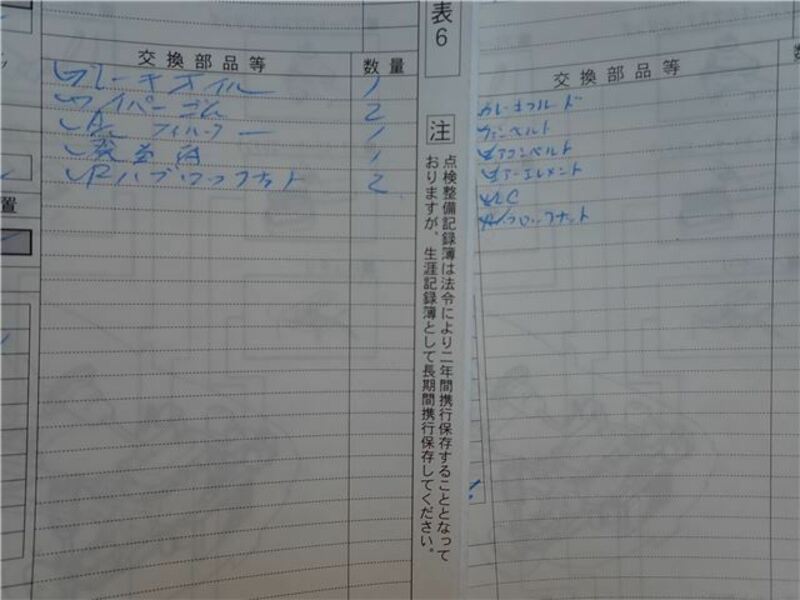 交換部品等 数量
ブレーキオイル 1
ワイパーゴム 2
1
1
Rハブロックナット 2
表6
注
点検整備記録簿は法令により二年間携行保存することとなって
おりますが、生涯記録簿として長期間携行保存してください。
交換部品等
ブレーキフルード
ファンベルト
エアコンベルト
エアーエレメント
LLC
ロックナット